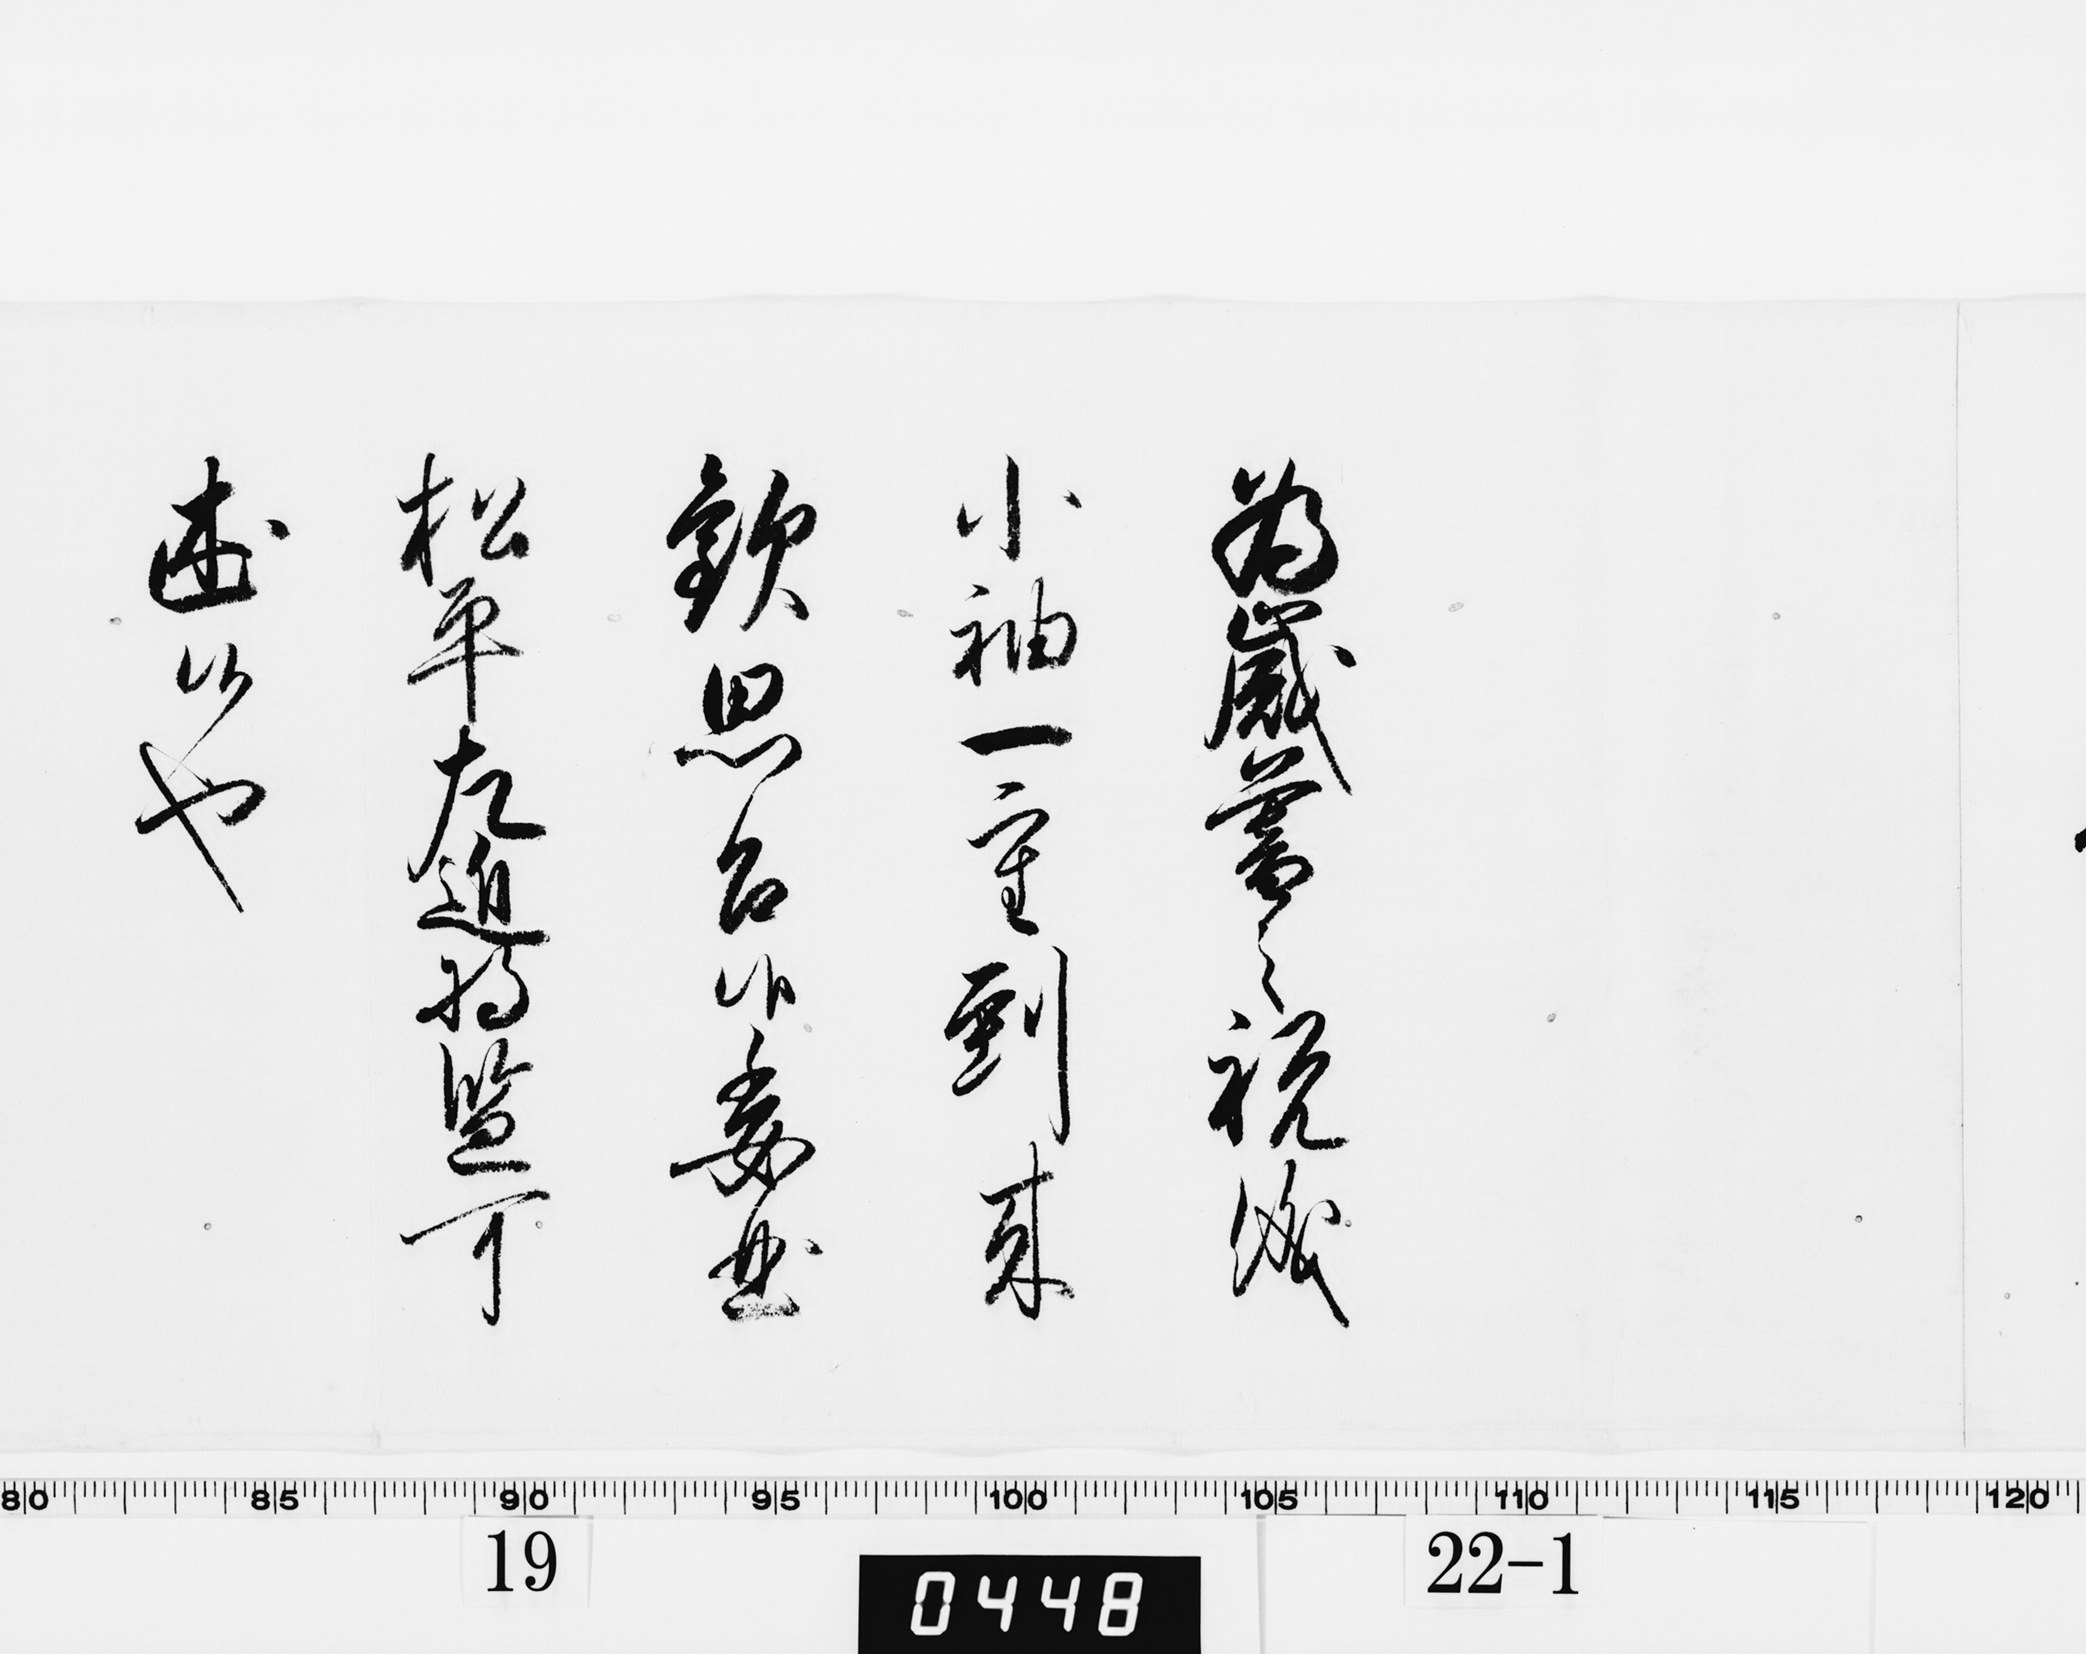 為歳暮之祝儀
小袖一重到来
歓思召候委曲
松平左近将監可
述候也
80 85 90 95 100 105 110 115 120
19
0448
22-1